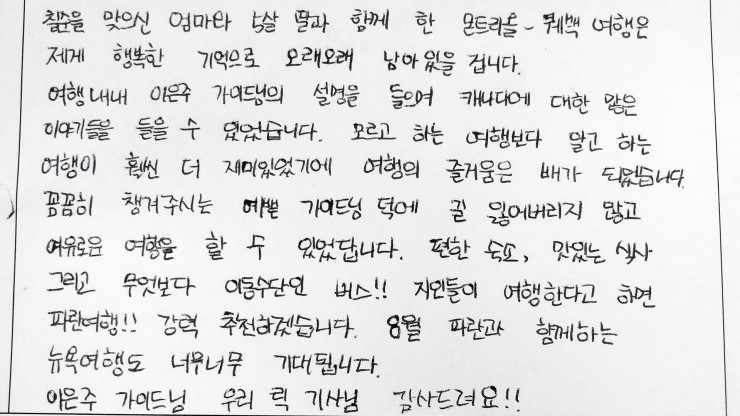 칠순을 맞으신 엄마와 5살 딸과 함께 한 몬트리올~퀘백 여행은
제게 행복한 기억으로 오래오래 남아있을 겁니다.
여행내내 이은주 가이드님의 설명을 들으며 캐나다에 대한 많은
이야기들을 들을 수 있었습니다. 모르고 하는 여행보다 알고 하는
여행이 훨씬 더 재미있었기에 여행의 즐거움은 배가 되었습니다.
꼼꼼히 챙겨주시는 예쁜 가이드님 덕에 길 잃어버리지 않고
여유로운 여행을 할 수 있었답니다. 편한 숙소, 맛있는 식사
그리고 무엇보다 이동수단인 버스!! 지인들이 여행한다고 하면
파란여행!! 강력 추천하겠습니다. 8월 파란과 함께하는
뉴욕여행도 너무너무 기대됩니다.
이은주 가이드님 우리 릭 기사님 감사드려요!!